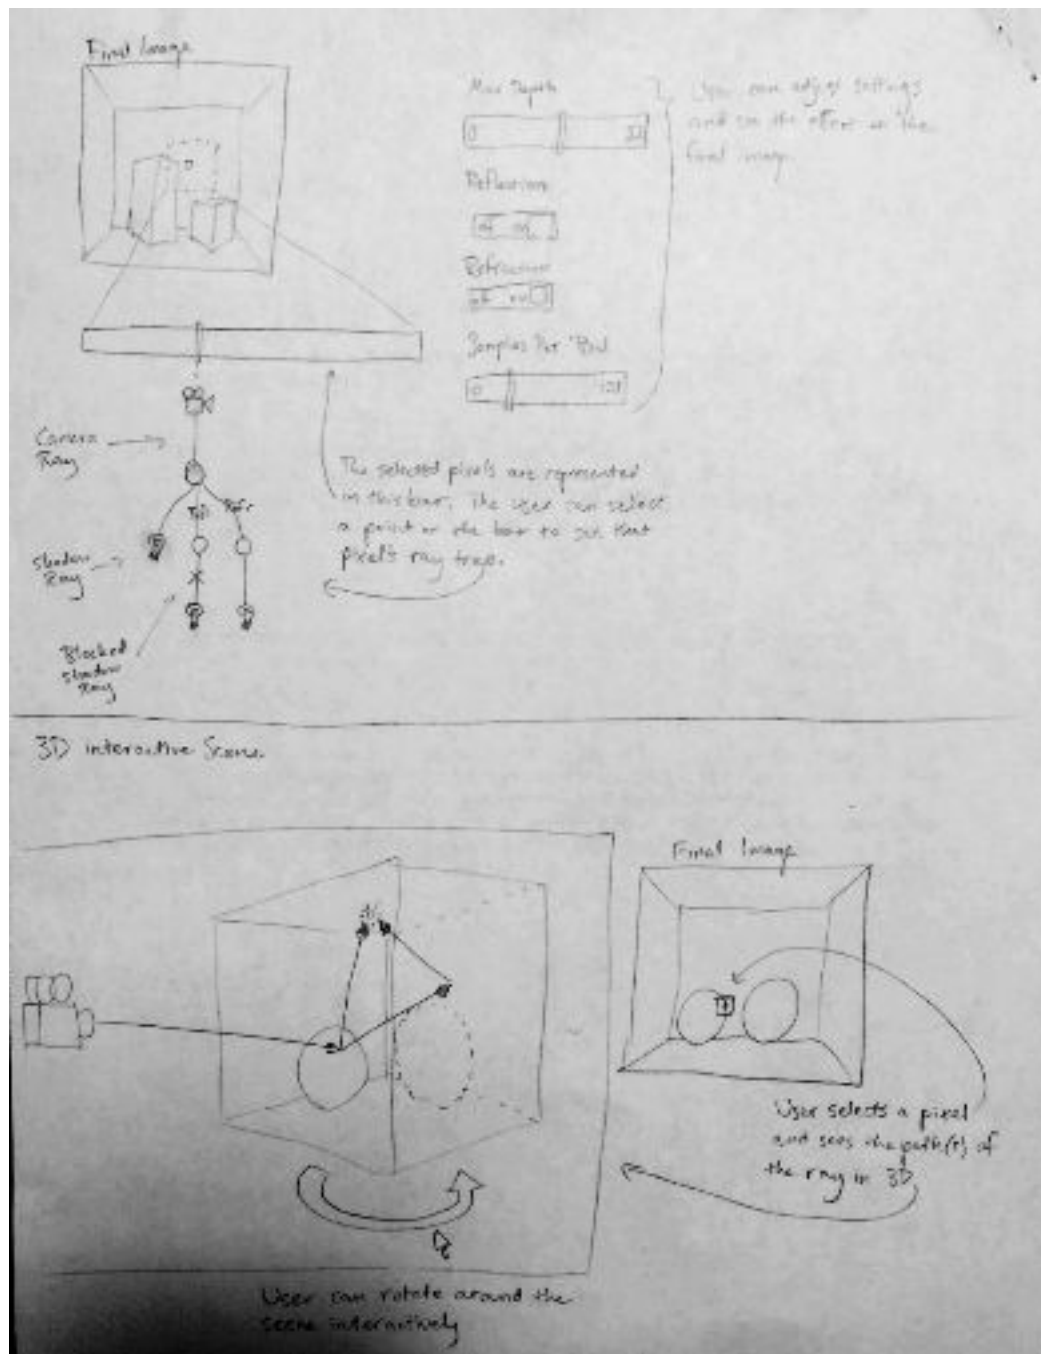 Final Image
Max Depth
0
32
Reflection
off on
Refraction
off on
Samples Per Pixel
0
128
User can adjust settings
and see the effect on the
final image.
Camera
Ray
Refl
Refr
Shadow
Ray
Blocked
Shadow
Ray
The selected pixels are represented
in this bar. The user can select
a point on the bar to see that
pixel's ray tree.
3D interactive Scene
Final Image
User selects a pixel
and sees the path(s) of
the ray in 3D
User can rotate around the
scene interactively